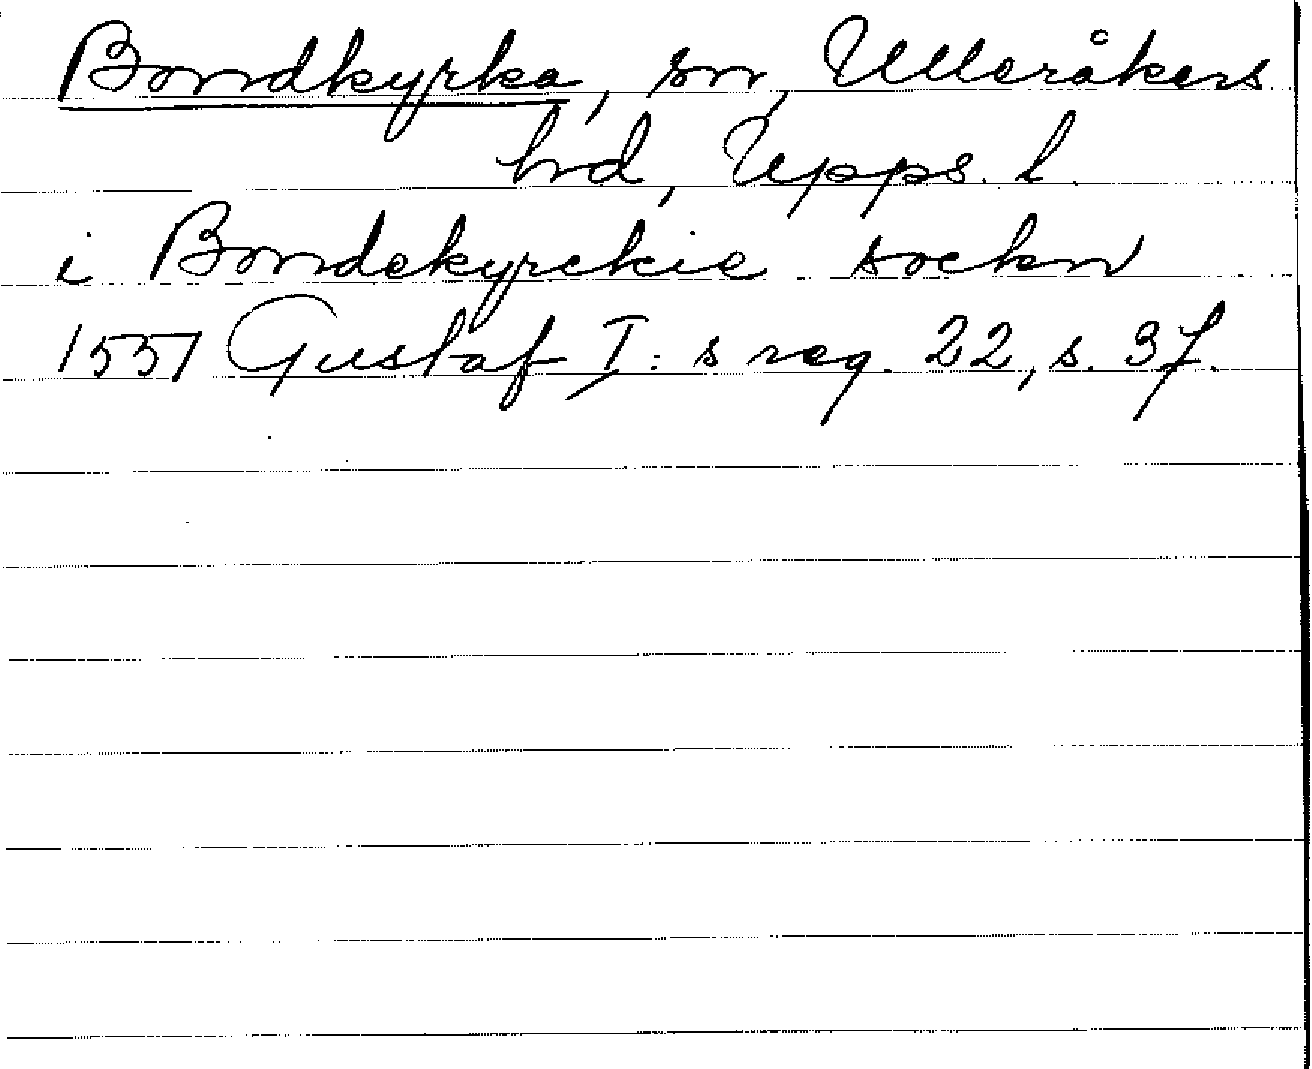 Bondkyrka, sn, Ulleråkers
hd, Upps. l.
i Bondekyrckie sockn
1551 Gustaf I:s reg. 22, s. 37.